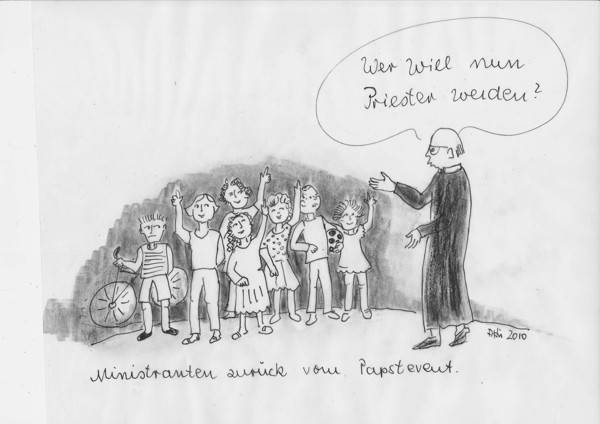 Wer will nun
Priester werden?
2010
Ministranten zurück vom Papstevent.